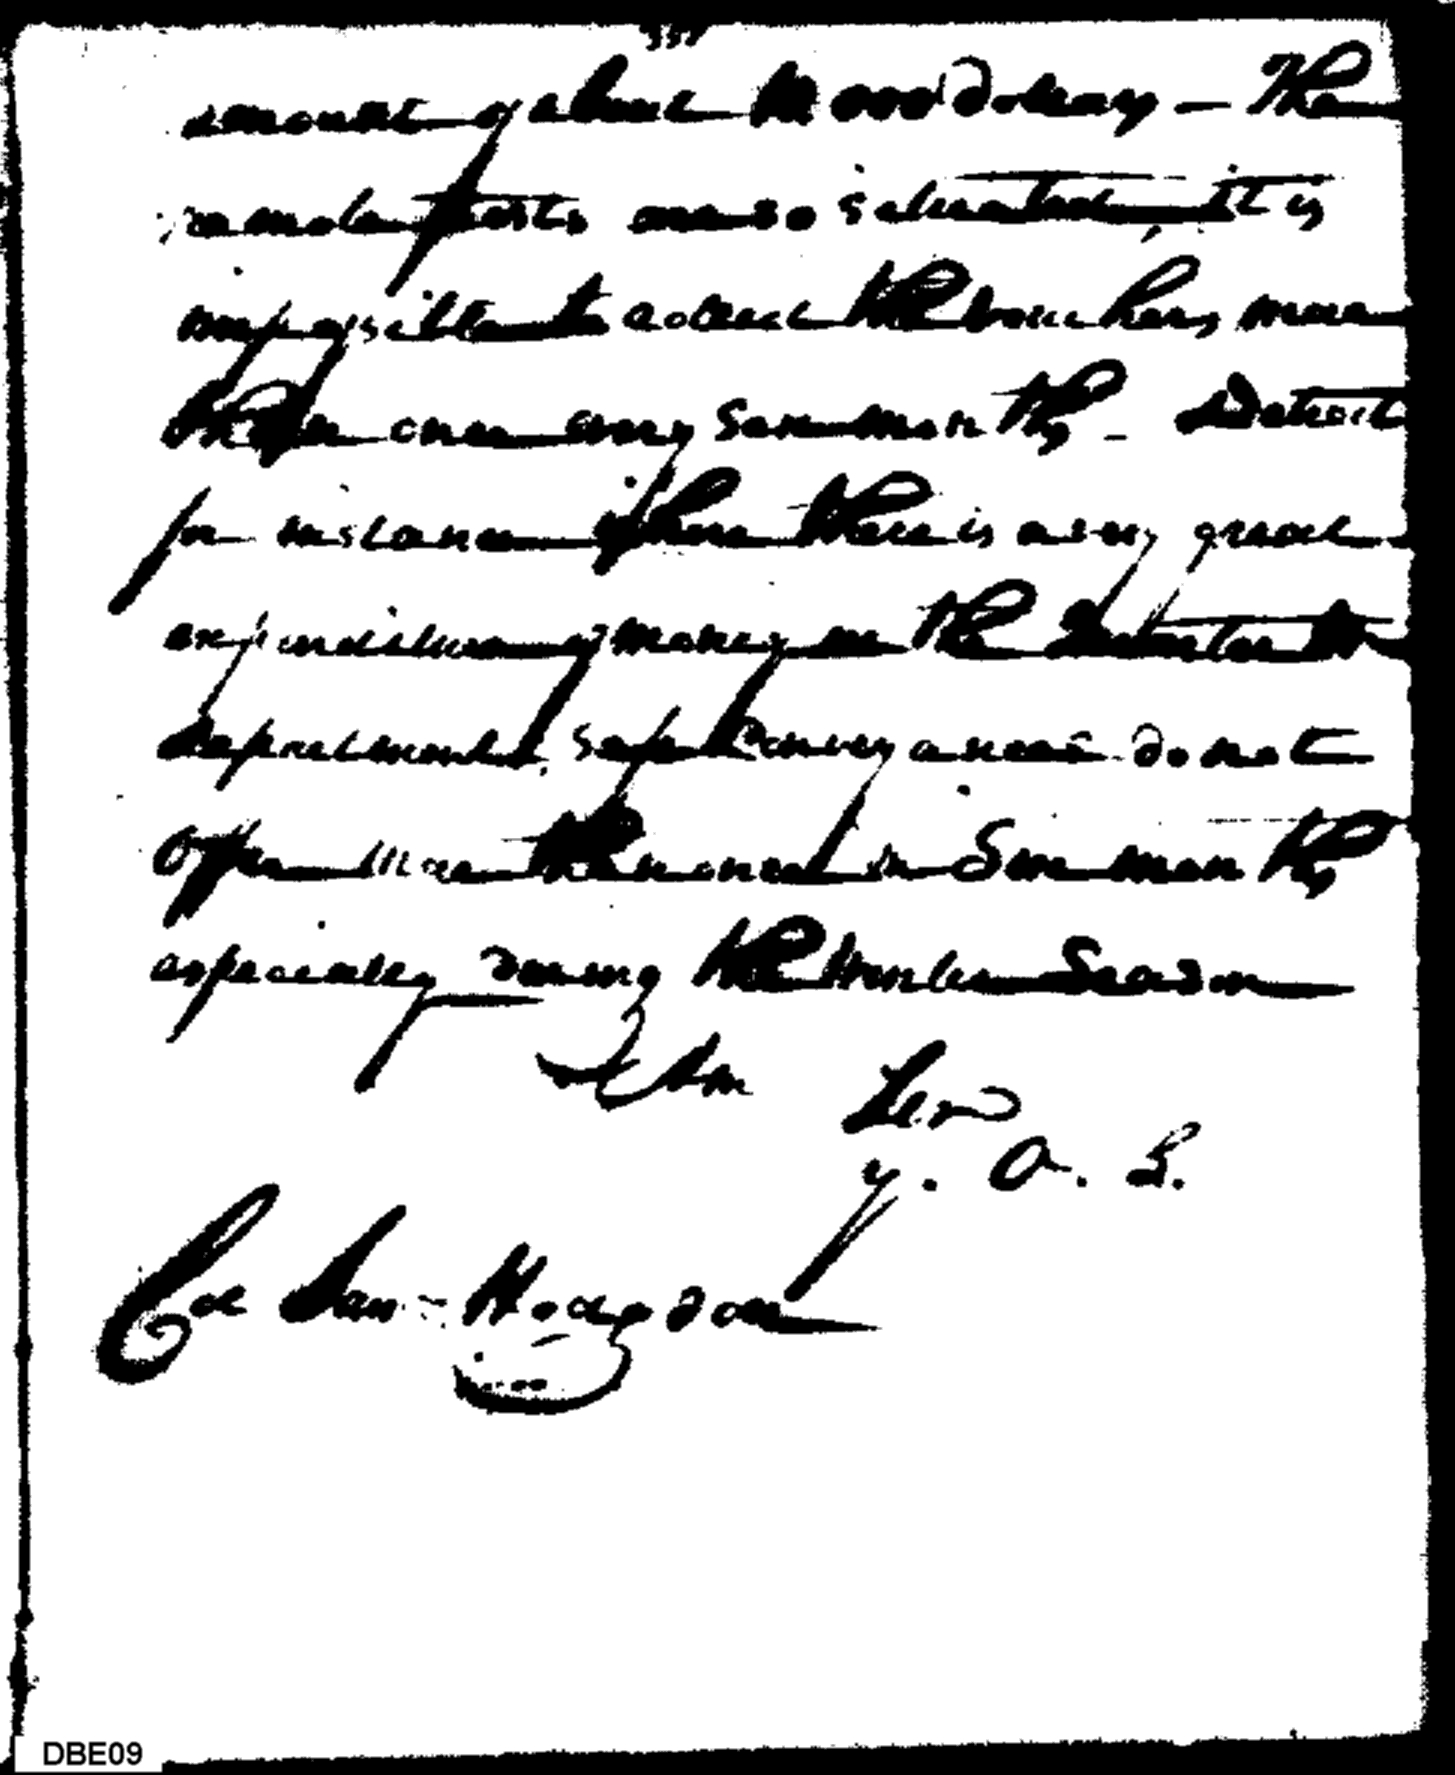 amount of about dollars — The
remote posts are so situated, it is
impossible to collect the vouchers, more
than once every Six months — Detroit
for instance where there is a very great
expenditure of money in the Quarter Mr
department, safe conveyances do not
offer more than once in Six months
especially during the winter Season
I Am Sir
y. O. S.
Col Sam Hodgdon
DBE09